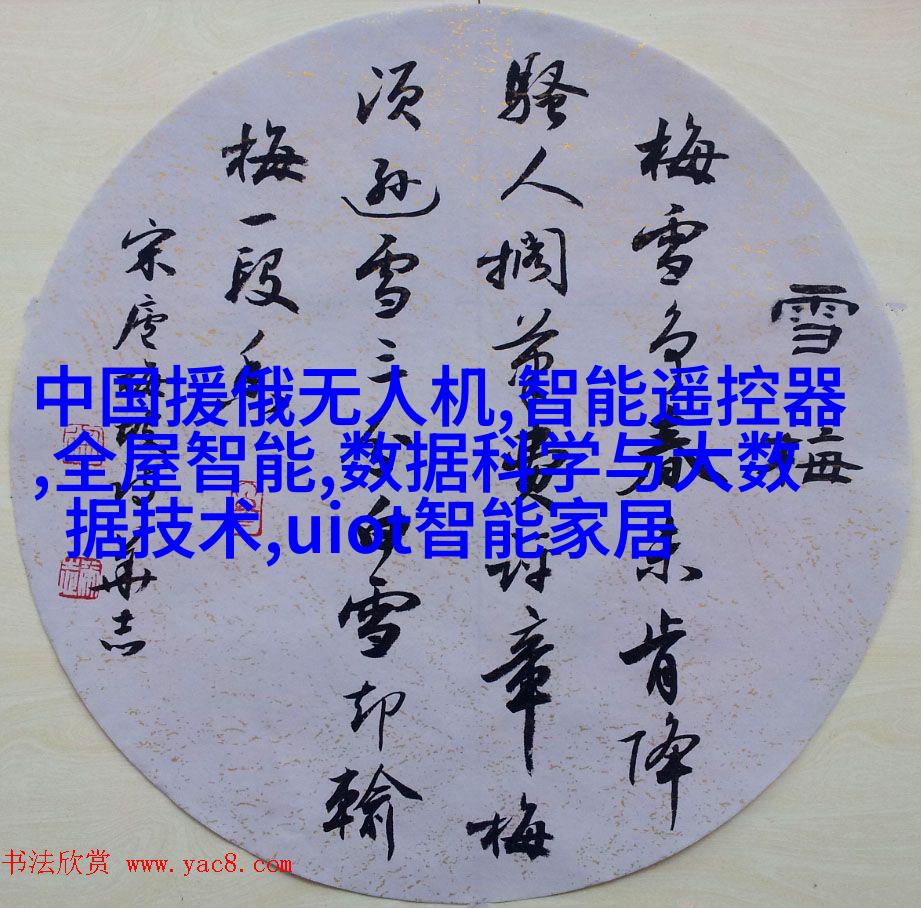 雪梅
梅雪争春未肯降
騷人擱笔费詩章梅
须逊雪三分白雪却輸
梅一段香
宋卢梅坡诗华志
中国援俄无人机,智能遥控器
,全屋智能,数据科学与大数
据技术,uiot智能家居
书法欣赏 www.yac8.com